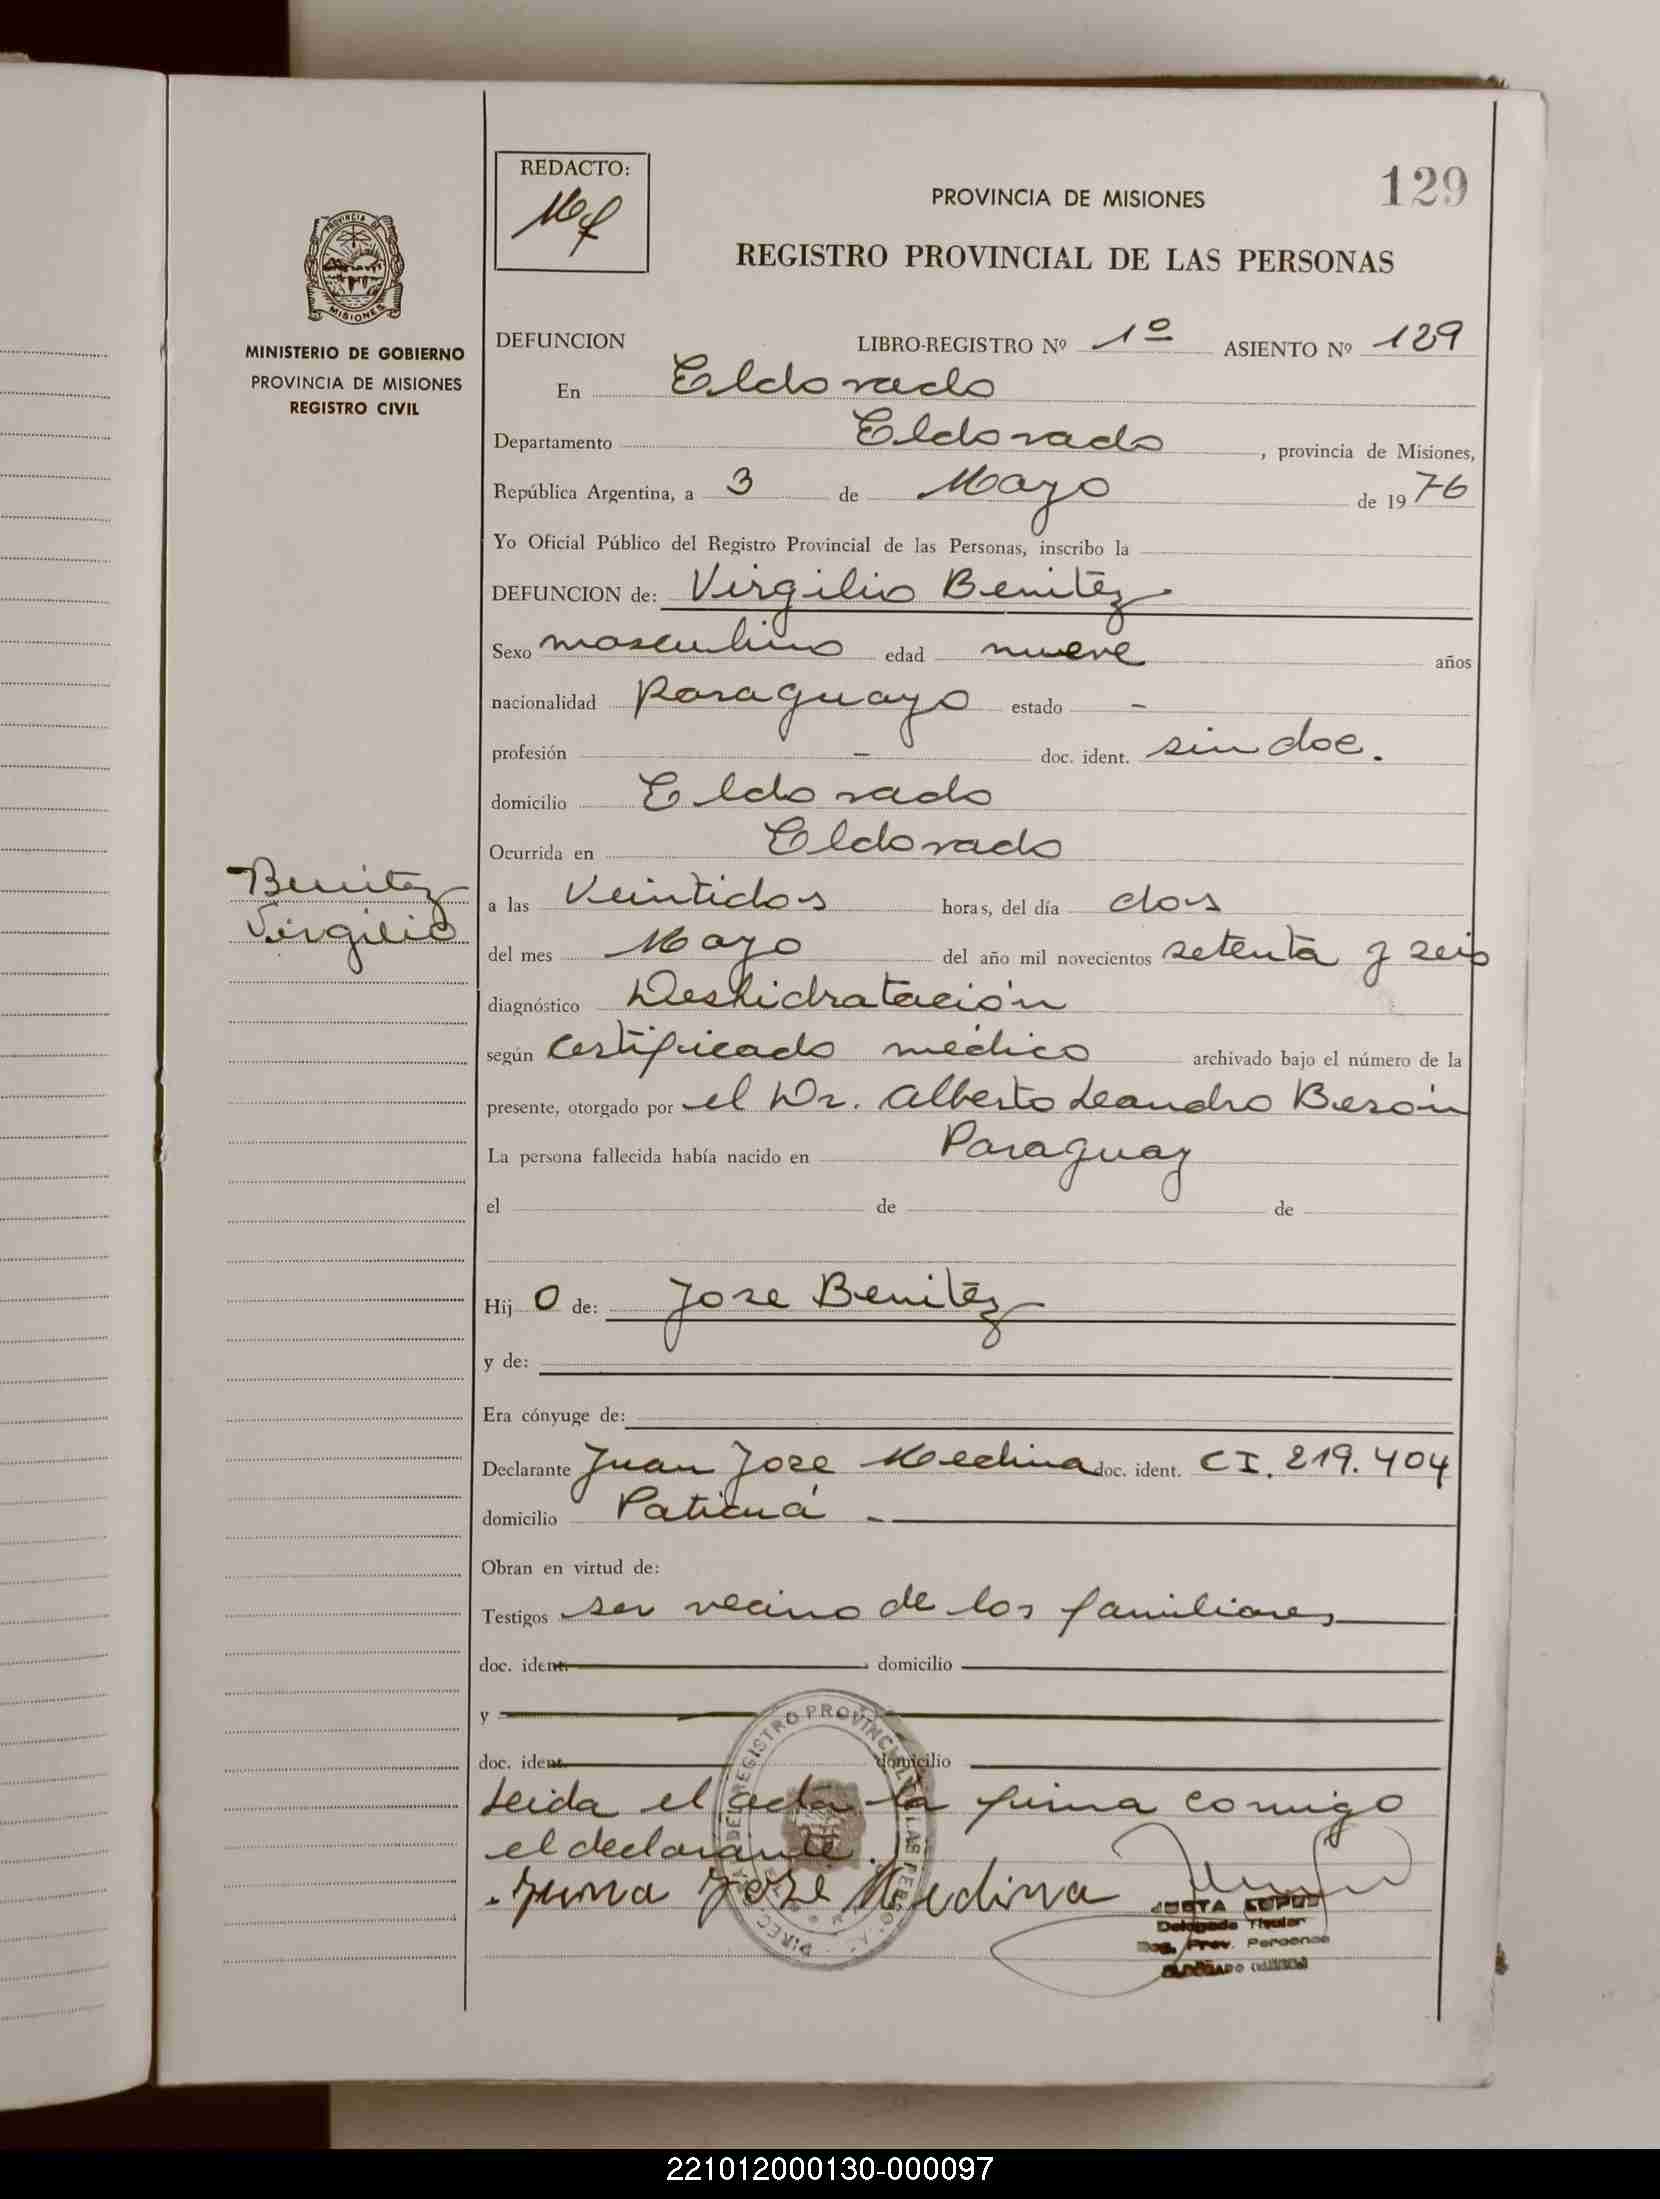 REDACTO:
129
PROVINCIA DE MISIONES
REGISTRO PROVINCIAL DE LAS PERSONAS
PROVINCIA DE
MISIONES
MINISTERIO DE GOBIERNO
PROVINCIA DE MISIONES
REGISTRO CIVIL
DEFUNCION LIBRO-REGISTRO Nº 1º ASIENTO Nº 129
En Eldorado
Departamento Eldorado, provincia de Misiones,
República Argentina, a 3 de Mayo de 1976
Yo Oficial Público del Registro Provincial de las Personas, inscribo la
DEFUNCION de: Virgilio Benitez
Sexo masculino edad nueve años
nacionalidad Paraguayo estado -
profesión - doc. ident. sin doc.
domicilio Eldorado
Ocurrida en Eldorado
Benitez
Virgilio
a las Veintidos horas, del día dos
del mes Mayo del año mil novecientos setenta y seis
diagnóstico Deshidratación
según Certificado médico archivado bajo el número de la
presente, otorgado por el Dr. Alberto Leandro Berón
La persona fallecida había nacido en Paraguay
el de de
Hij o de: Jose Benitez
y de:
Era cónyuge de:
Declarante Juan Jose Medina doc. ident. CI. 219.404
domicilio Paticuá -
Obran en virtud de:
Testigos ser vecino de los familiares
doc. ident. domicilio
y
doc. ident. domicilio
Leida el acta la firma conmigo
el declarante.
Juan Jose Medina
Delegada Titular
Reg. Prov. Personas
ELDORADO (Misiones)
221012000130-000097